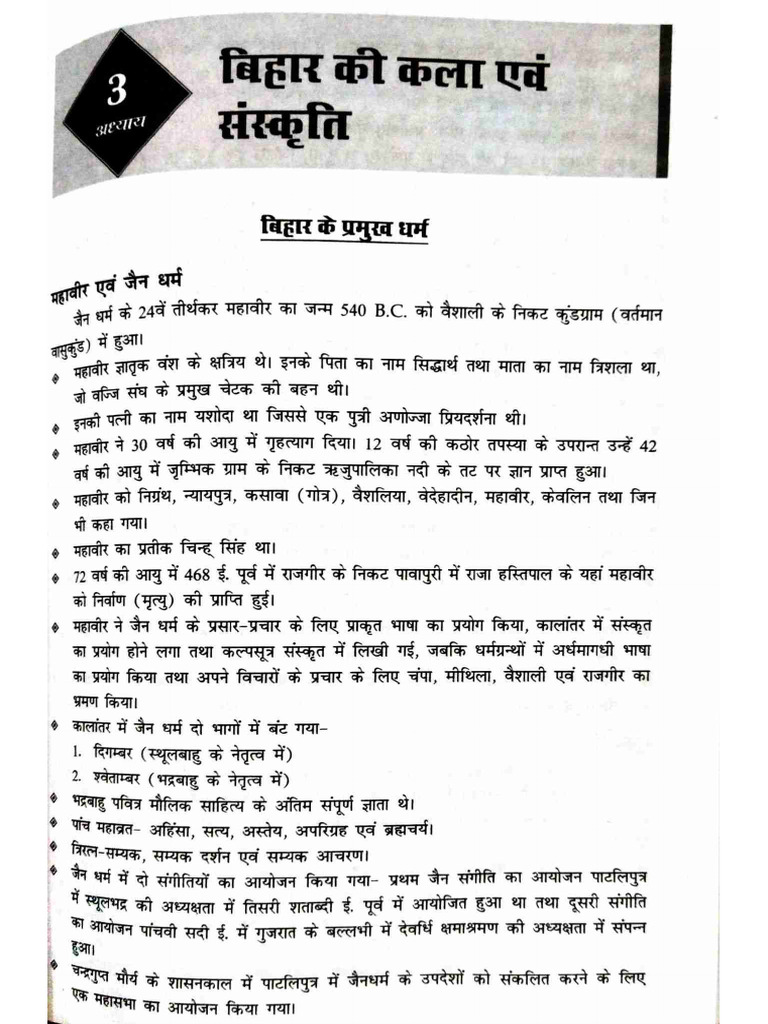 3
अध्याय
बिहार की कला एवं
संस्कृति
बिहार के प्रमुख धर्म
महावीर एवं जैन धर्म
जैन धर्म के 24वें तीर्थकर महावीर का जन्म 540 B.C. को वैशाली के निकट कुंडग्राम (वर्तमान
वासुकुंड) में हुआ।
महावीर ज्ञातृक वंश के क्षत्रिय थे। इनके पिता का नाम सिद्धार्थ तथा माता का नाम त्रिशला था,
जो वज्जि संघ के प्रमुख चेटक की बहन थी।
इनकी पत्नी का नाम यशोदा था जिससे एक पुत्री अणोज्जा प्रियदर्शना थी।
महावीर ने 30 वर्ष की आयु में गृहत्याग दिया। 12 वर्ष की कठोर तपस्या के उपरान्त उन्हें 42
वर्ष की आयु में जृम्भिक ग्राम के निकट ऋजुपालिका नदी के तट पर ज्ञान प्राप्त हुआ।
महावीर को निग्रंथ, न्यायपुत्र, कसावा (गोत्र), वैशलिया, वेदेहादीन, महावीर, केवलिन तथा जिन
भी कहा गया।
महावीर का प्रतीक चिन्ह् सिंह था।
72 वर्ष की आयु में 468 ई. पूर्व में राजगीर के निकट पावापुरी में राजा हस्तिपाल के यहां महावीर
को निर्वाण (मृत्यु) की प्राप्ति हुई।
महावीर ने जैन धर्म के प्रसार-प्रचार के लिए प्राकृत भाषा का प्रयोग किया, कालांतर में संस्कृत
का प्रयोग होने लगा तथा कल्पसूत्र संस्कृत में लिखी गई, जबकि धर्मग्रन्थों में अर्धमागधी भाषा
का प्रयोग किया तथा अपने विचारों के प्रचार के लिए चंपा, मीथिला, वैशाली एवं राजगीर का
भ्रमण किया।
कालांतर में जैन धर्म दो भागों में बंट गया-
1. दिगम्बर (स्थूलबाहु के नेतृत्व में)
2. श्वेताम्बर (भद्रबाहु के नेतृत्व में)
भद्रबाहु पवित्र मौलिक साहित्य के अंतिम संपूर्ण ज्ञाता थे।
पांच महाव्रत- अहिंसा, सत्य, अस्तेय, अपरिग्रह एवं ब्रह्मचर्य।
त्रिरत्न-सम्यक, सम्यक दर्शन एवं सम्यक आचरण।
जैन धर्म में दो संगीतियों का आयोजन किया गया- प्रथम जैन संगीति का आयोजन पाटलिपुत्र
में स्थूलभद्र की अध्यक्षता में तिसरी शताब्दी ई. पूर्व में आयोजित हुआ था तथा दूसरी संगीति
का आयोजन पांचवी सदी ई. में गुजरात के बल्लभी में देवर्धि क्षमाश्रमण की अध्यक्षता में संपन्न
हुआ।
चन्द्रगुप्त मौर्य के शासनकाल में पाटलिपुत्र में जैनधर्म के उपदेशों को संकलित करने के लिए
एक महासभा का आयोजन किया गया।